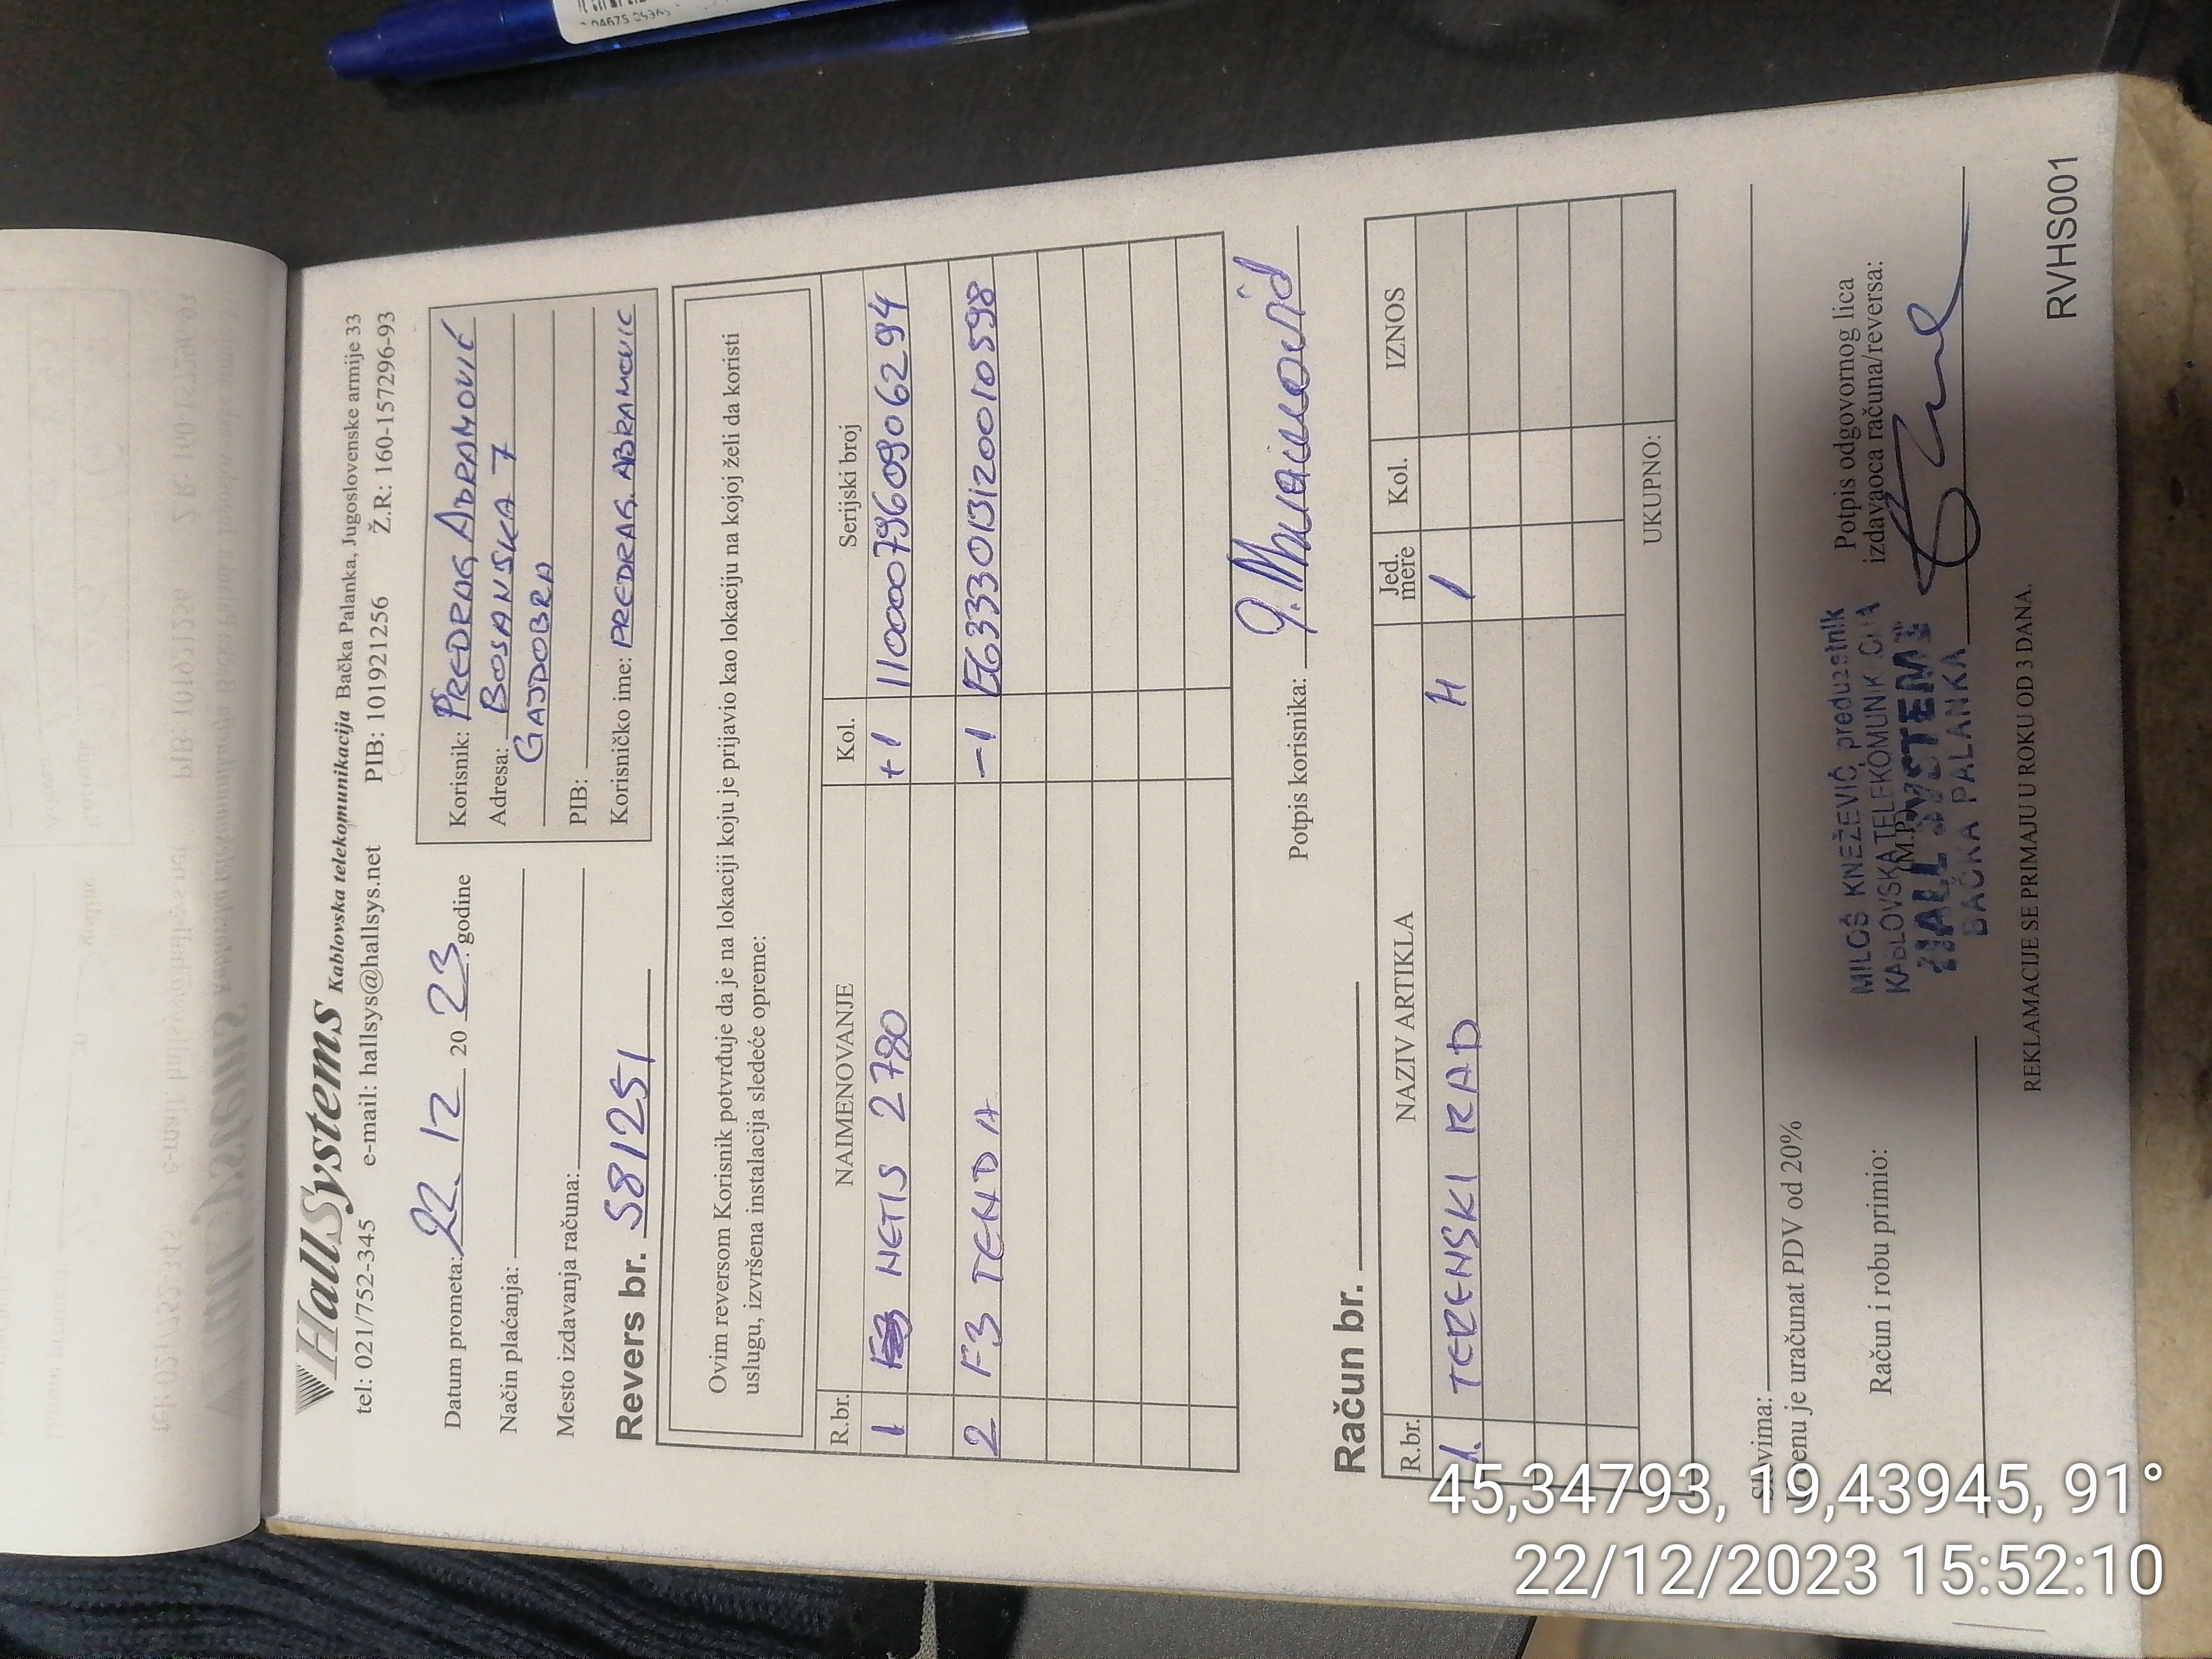 HallSystems Kablovska telekomunikacija Bačka Palanka, Jugoslovenske armije 33
tel: 021/752-345 e-mail: hallsys@hallsys.net PIB: 101921256 Ž.R: 160-157296-93
Datum prometa: 22. 12 20 23. godine
Način plaćanja:
Mesto izdavanja računa:
Revers br. 581251
Korisnik: PREDRAG ABRAMOVIĆ
Adresa: BOSANSKA 7
GAJDOBRA
PIB:
Korisničko ime: PREDRAG.ABRAMOVIC
Ovim reversom Korisnik potvrđuje da je na lokaciji koju je prijavio kao lokaciju na kojoj želi da koristi
uslugu, izvršena instalacija sledeće opreme:
R.br. NAIMENOVANJE Kol. Serijski broj
1 NETIS 2780 +1 1100007966090 6294
2 F3 TENDA -1 E6333013120010598
Potpis korisnika:
Račun br.
R.br. NAZIV ARTIKLA Jed. mere Kol. IZNOS
1. TERENSKI RAD H 1
UKUPNO:
Slovima:
U cenu je uračunat PDV od 20%
Račun i robu primio:
MILOŠ KNEŽEVIĆ preduzetnik
KABLOVSKA TELEKOMUNIKACIJA
(M.P.)
HALL SYSTEMS
BAČKA PALANKA
Potpis odgovornog lica
izdavaoca računa/reversa:
REKLAMACIJE SE PRIMAJU U ROKU OD 3 DANA.
RVHS001
45,34793, 19,43945, 91°
22/12/2023 15:52:10